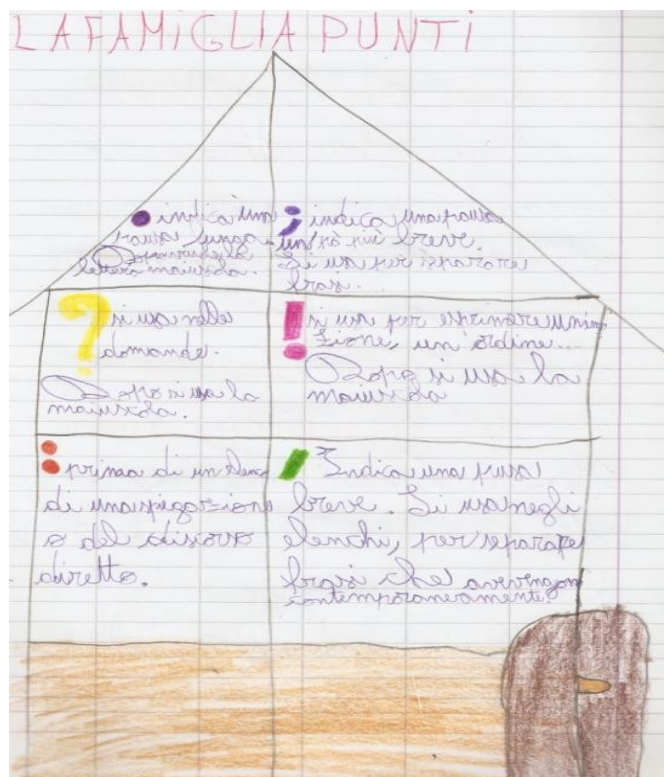 LA FAMIGLIA PUNTI
. indica una
pausa lunga.
Dopo si usa la
lettera maiuscola.
; indica una pausa
un po' più breve.
Si usa per separare
frasi.
? si usa nelle
domande.
Dopo si usa la
maiuscola.
! si usa per esprimere
un ordine...
Dopo si usa la
maiuscola
: prima di un elenco
di una spiegazione
o del discorso
diretto.
, Indica una pausa
breve. Si usa negli
elenchi, per separare
frasi che avvengono
contemporaneamente.